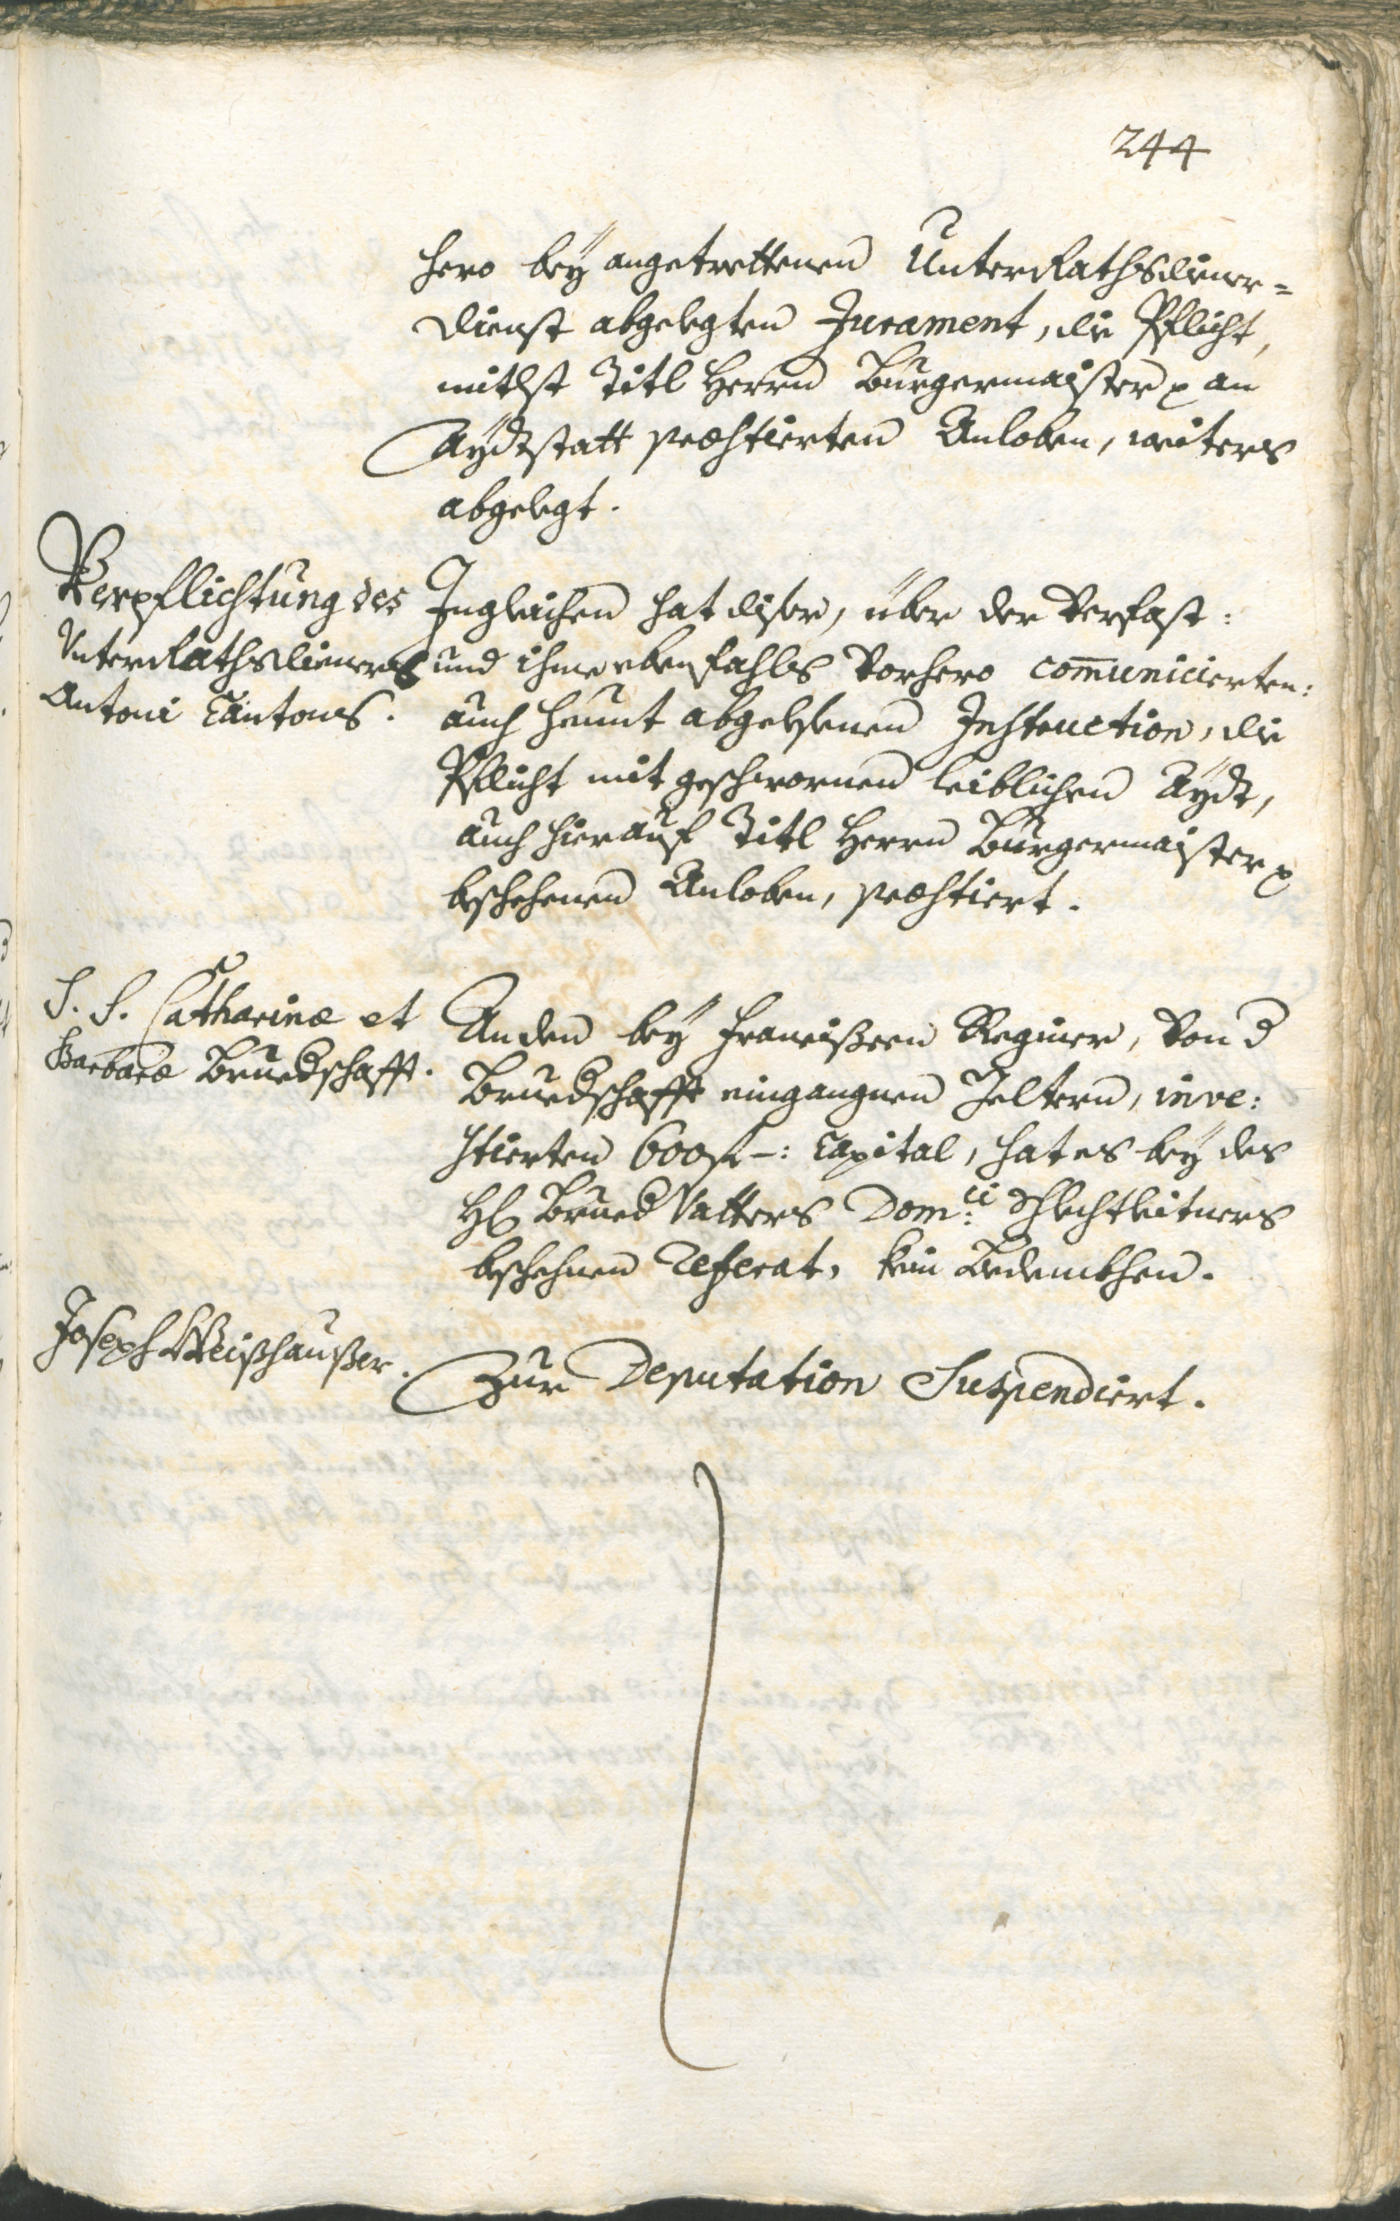 244
hero bey angetrettenen UnterRathsdiener=
dienst abgelegten Jurament, die Pflicht,
mitlst Titl Herrn Burgermaister an
Aydtstatt præstierten Anloben, weiters
abgelegt.
Verpflichtung des
UnterRathsdieners
Antoni Cantons.
Ingleichen hat diser, über der Verfast:
und ihme ebenfahls Vorhero com̄unicierten:
auch heunt abgelesenen Instruction, die
Pflicht mit geschwornen leiblichen Aydt,
auch hierauf Titl Herrn Burgermaister
beschehenen Anloben, præstiert.
S. S. Catharinæ et
Barbaræ Bruedschafft.
An den bey Francißcen Regner, Von d
Bruedschafft eingangnen Geltern, inve:
stierten 600 fl -: Capital, hat es bey des
H Brued Vatters Dom:ci Schlechtleitners
beschehnen Referat, kein Bedenckhen.
Joseph Weißhaußer.
Zur Deputation Suspendiert.